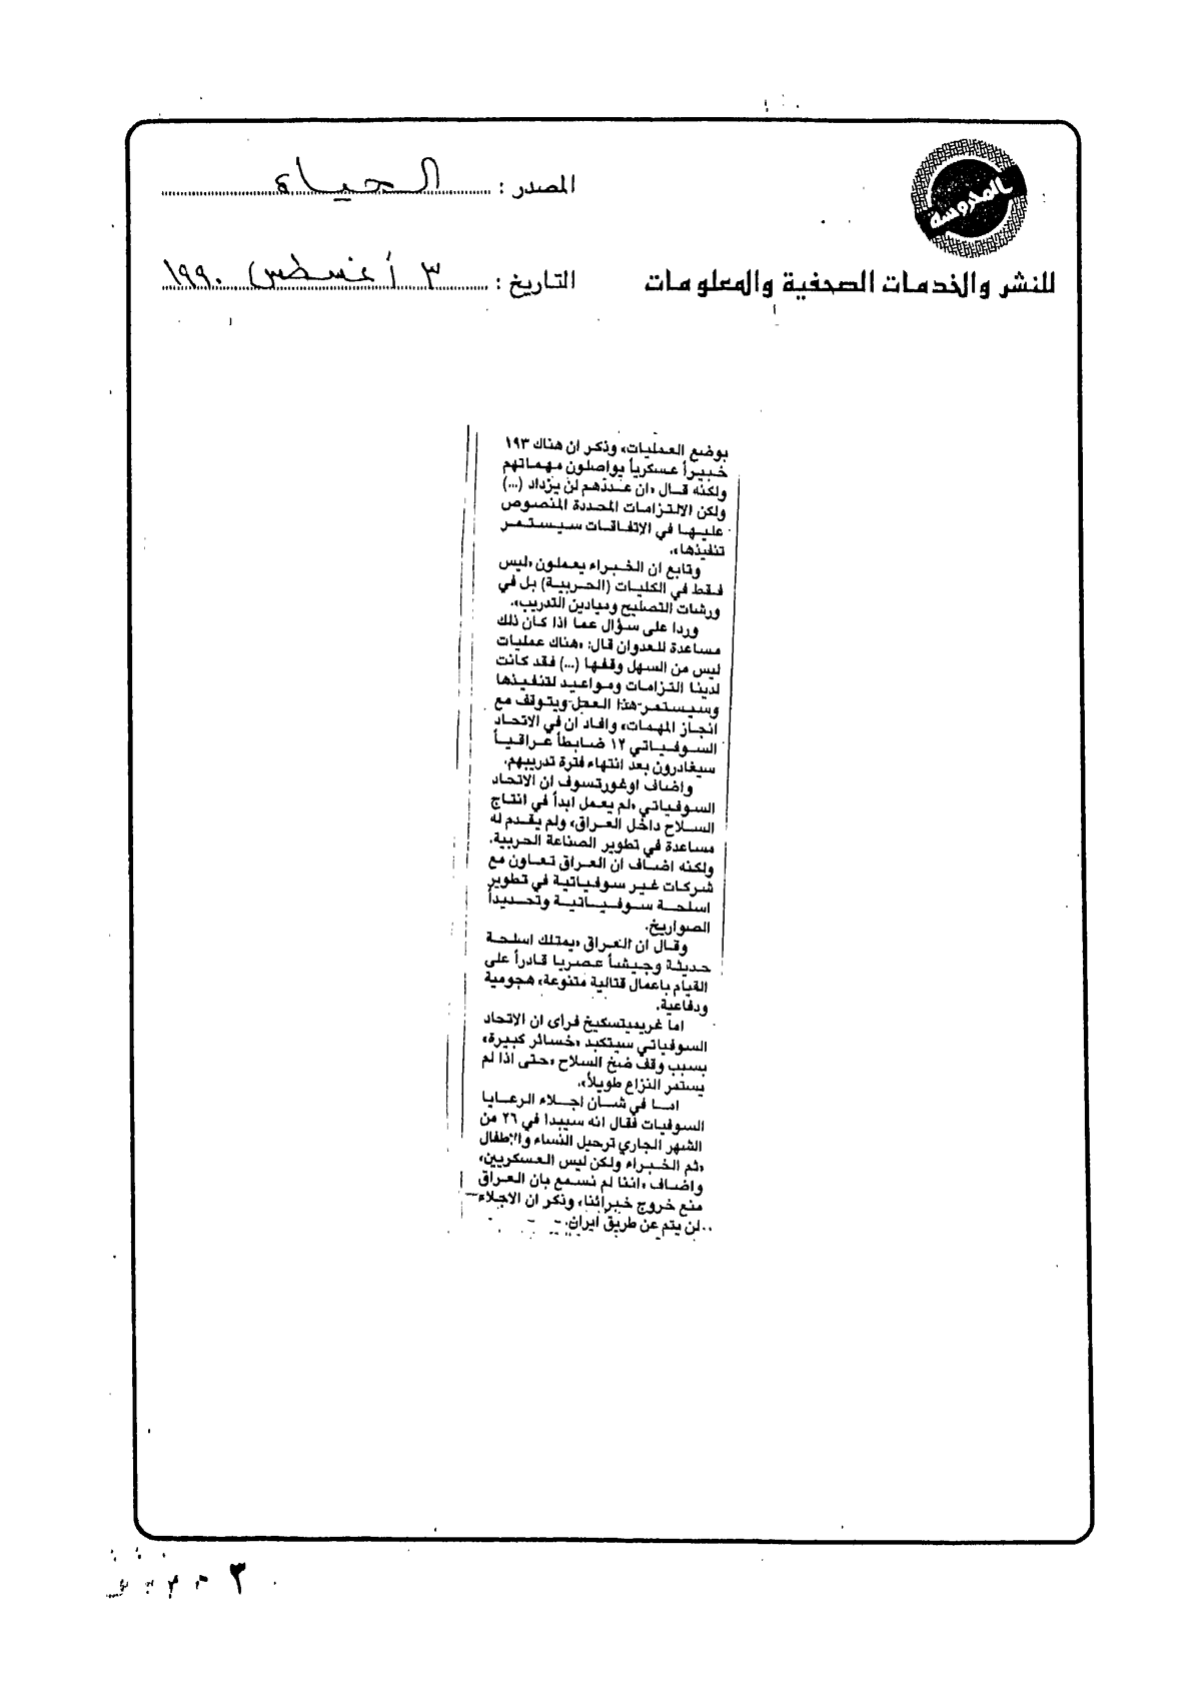 المحروسة
المصدر : الحياة
للنشر والخدمات الصحفية والمعلومات
التاريخ : ٣ أغسطس ١٩٩٠
بوضع العمليات» وذكر ان هناك ١٩٣
خبيراً عسكرياً يواصلون مهماتهم
ولكنه قال «ان عددهم لن يزداد (...)
ولكن الالتزامات المحددة المنصوص
عليها في الاتفاقات سيستمر
تنفيذها».
وتابع ان الخبراء يعملون «ليس
فقط في الكليات (الحربية) بل في
ورشات التصليح وميادين التدريب».
وردا على سؤال عما اذا كان ذلك
مساعدة للعدوان قال: «هناك عمليات
ليس من السهل وقفها (...) فقد كانت
لدينا التزامات ومواعيد لتنفيذها
وسيستمر هذا العمل ويتوقف مع
انجاز المهمات» وافاد ان في الاتحاد
السوفياتي ١٢ ضابطاً عراقياً
سيغادرون بعد انتهاء فترة تدريبهم.
واضاف اوغورتسوف ان الاتحاد
السوفياتي «لم يعمل ابدأ في انتاج
السلاح داخل العراق» ولم يقدم له
مساعدة في تطوير الصناعة الحربية.
ولكنه اضاف ان العراق تعاون مع
شركات غير سوفياتية في تطوير
اسلحة سوفياتية وتحديداً
الصواريخ.
وقال ان العراق «يمتلك اسلحة
حديثة وجيشاً عصريا قادراً على
القيام باعمال قتالية متنوعة» هجومية
ودفاعية.
اما غريميتسكيخ فرأى ان الاتحاد
السوفياتي سيتكبد «خسائر كبيرة»
بسبب وقف ضخ السلاح «حتى اذا لم
يستمر النزاع طويلاً».
اما في شان اجلاء الرعايا
السوفيات فقال انه سيبدا في ٢٦ من
الشهر الجاري ترحيل النساء والاطفال
«ثم الخبراء ولكن ليس العسكريين»
واضاف «اننا لم نسمع بان العراق
منع خروج خبرائنا» وذكر ان الاجلاء
لن يتم عن طريق ايران.